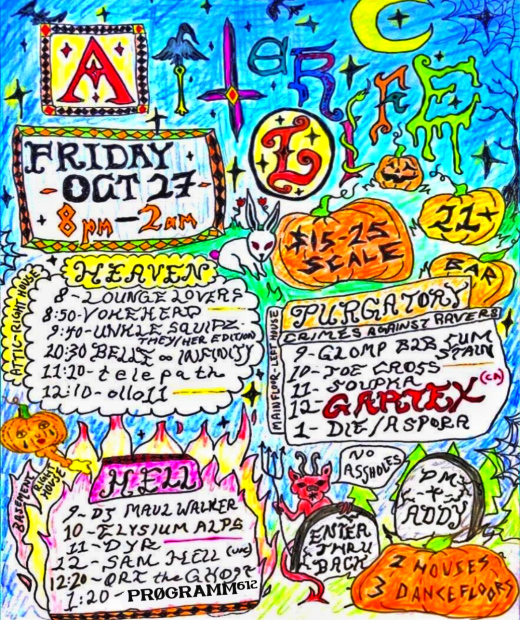 AFTERLIFE
FRIDAY
OCT 27
8pm-2am
$15-25
SCALE
21+
BAR
ATTIC-RIGHT HOUSE
HEAVEN
8-LOUNGE LOVERS
8:50-YOKEHEAD
9:40-UNKLE SQUIDZ
THEY/HER EDITION
10:30 BELLE ∞ INFINITY
11:20-telepath
12:10-olloii
MAIN FLOOR-LEFT HOUSE
PURGATORY
CRIMES AGAINST RAVERS
9-GLOMP B2B CUM
STAIN
10-JOE CROSS
11-SOUPKA
12-GARTEX (CA)
1-DIE/ASPORA
BASEMENT
RIGHT HOUSE
HELL
9-DJ MAUL WALKER
10-ELYSIUM ALPS
11-DYR
12-SAN HELL (live)
12:20-ORI the GHOST
1:20-PRØGRAMM612
NO
ASSHOLES
ENTER
THRU
BACK
DM
4
ADDY
2 HOUSES
3 DANCEFLOORS